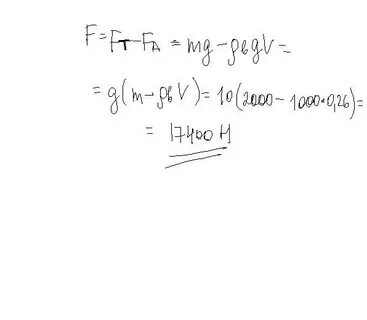 F = Fт - FА = mg - ρвgV =
= g(m - ρвV) = 10(2000 - 1000·0,26) =
= 17400 Н